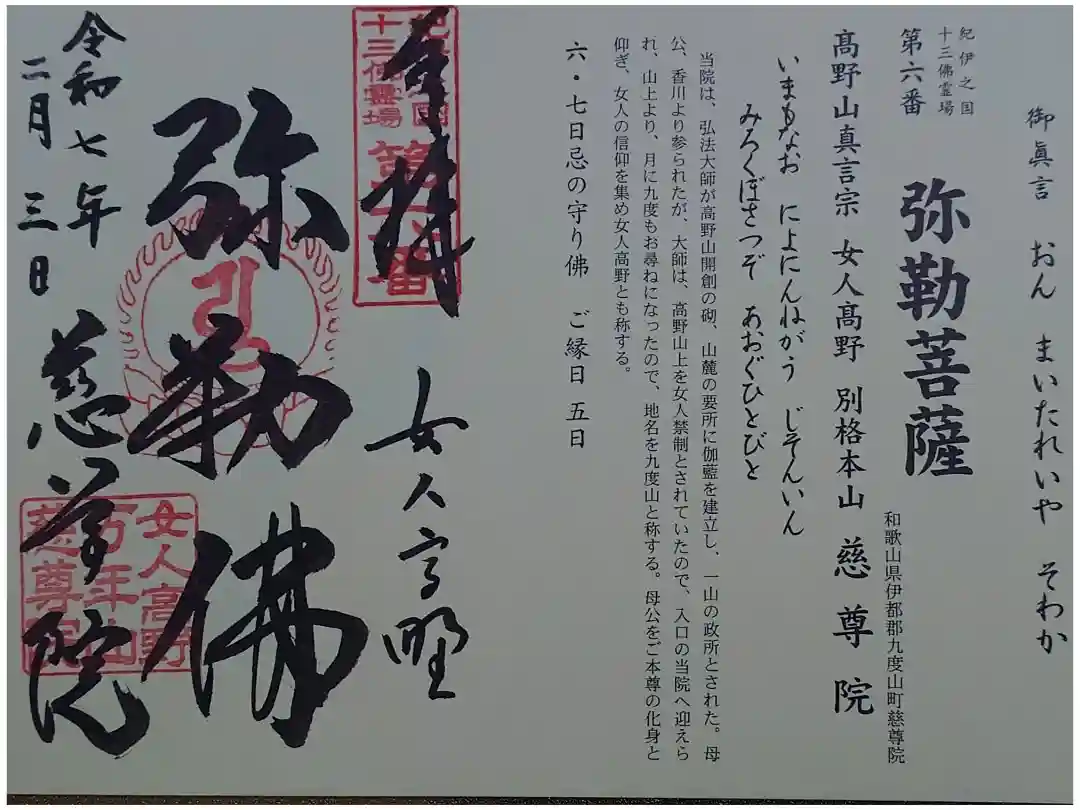 御眞言　おん　まいたれいや　そわか
紀伊之国
十三佛霊場
第六番　弥勒菩薩
和歌山県伊都郡九度山町慈尊院
高野山真言宗　女人高野　別格本山　慈尊院
いまもなお　によにんねがう　じそんいん
みろくぼさつぞ　あおぐひとびと
当院は、弘法大師が高野山開創の砌、山麓の要所に伽藍を建立し、一山の政所とされた。母
公、香川より参られたが、大師は、高野山上を女人禁制とされていたので、入口の当院へ迎えら
れ、山上より、月に九度もお尋ねになったので、地名を九度山と称する。母公をご本尊の化身と
仰ぎ、女人の信仰を集め女人高野とも称する。
六・七日忌の守り佛　ご縁日　五日
奉拝　女人高野
十三佛霊場
第六番
弥勒佛
令和七年
二月三日
慈尊院
女人高野
万年山
慈尊院